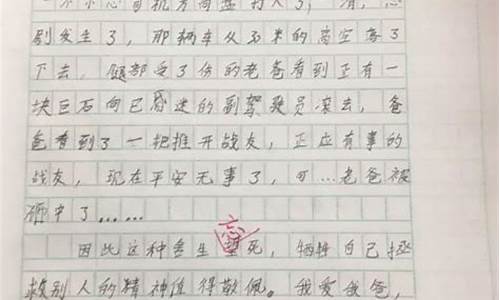 一不小心司机方向盘打
剧发生了，那辆车从30米的高空落了
下去，腿部受了份的老爸看到正有一
块巨石向已昏迷的副驾驶员滚去，爸
爸看到了一把推开战友，正应有事的
战友，现在平安无事了，可…老爸被
砸中了……
忘
因此这种舍生望死，牺牲自己拯
救别人的精神值得敬佩。我爱我爸，